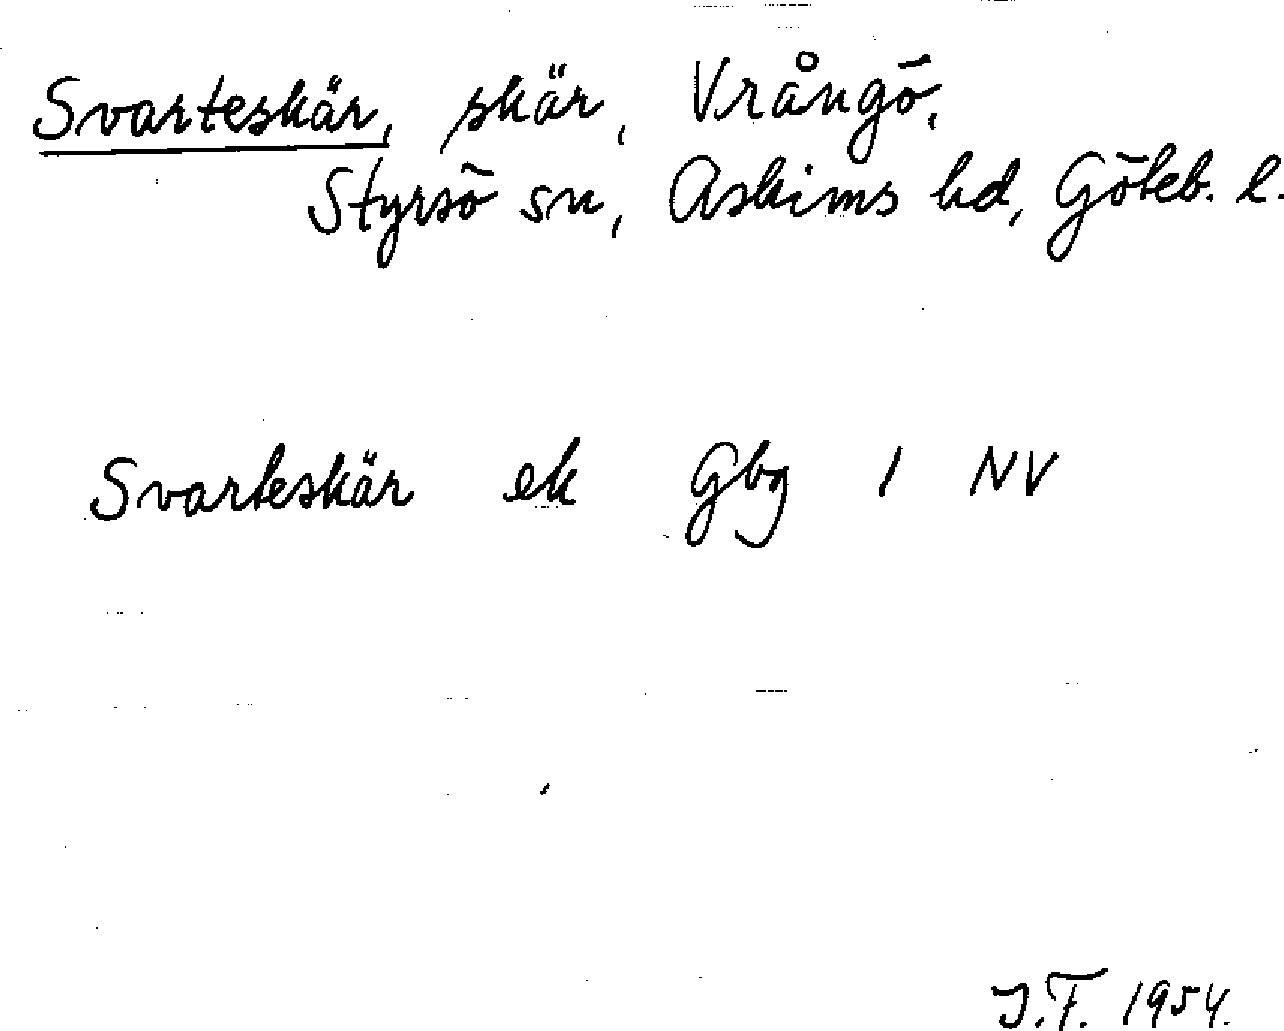 Svarteskär, skär, Vrångö,
Styrsö sn, Askims hd, Göteb. l.
Svarteskär ek Gbg 1 NV
J.F. 1954.